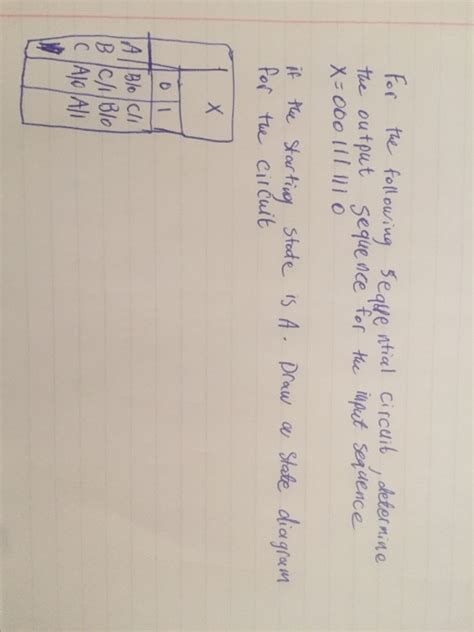 For the following sequential circuit, determine
the output sequence for the input sequence
X=0001111110
if the starting state is A. Draw a state diagram
for the circuit
X
0 1
A B/0 C/1
B C/1 B/0
C A/0 A/1